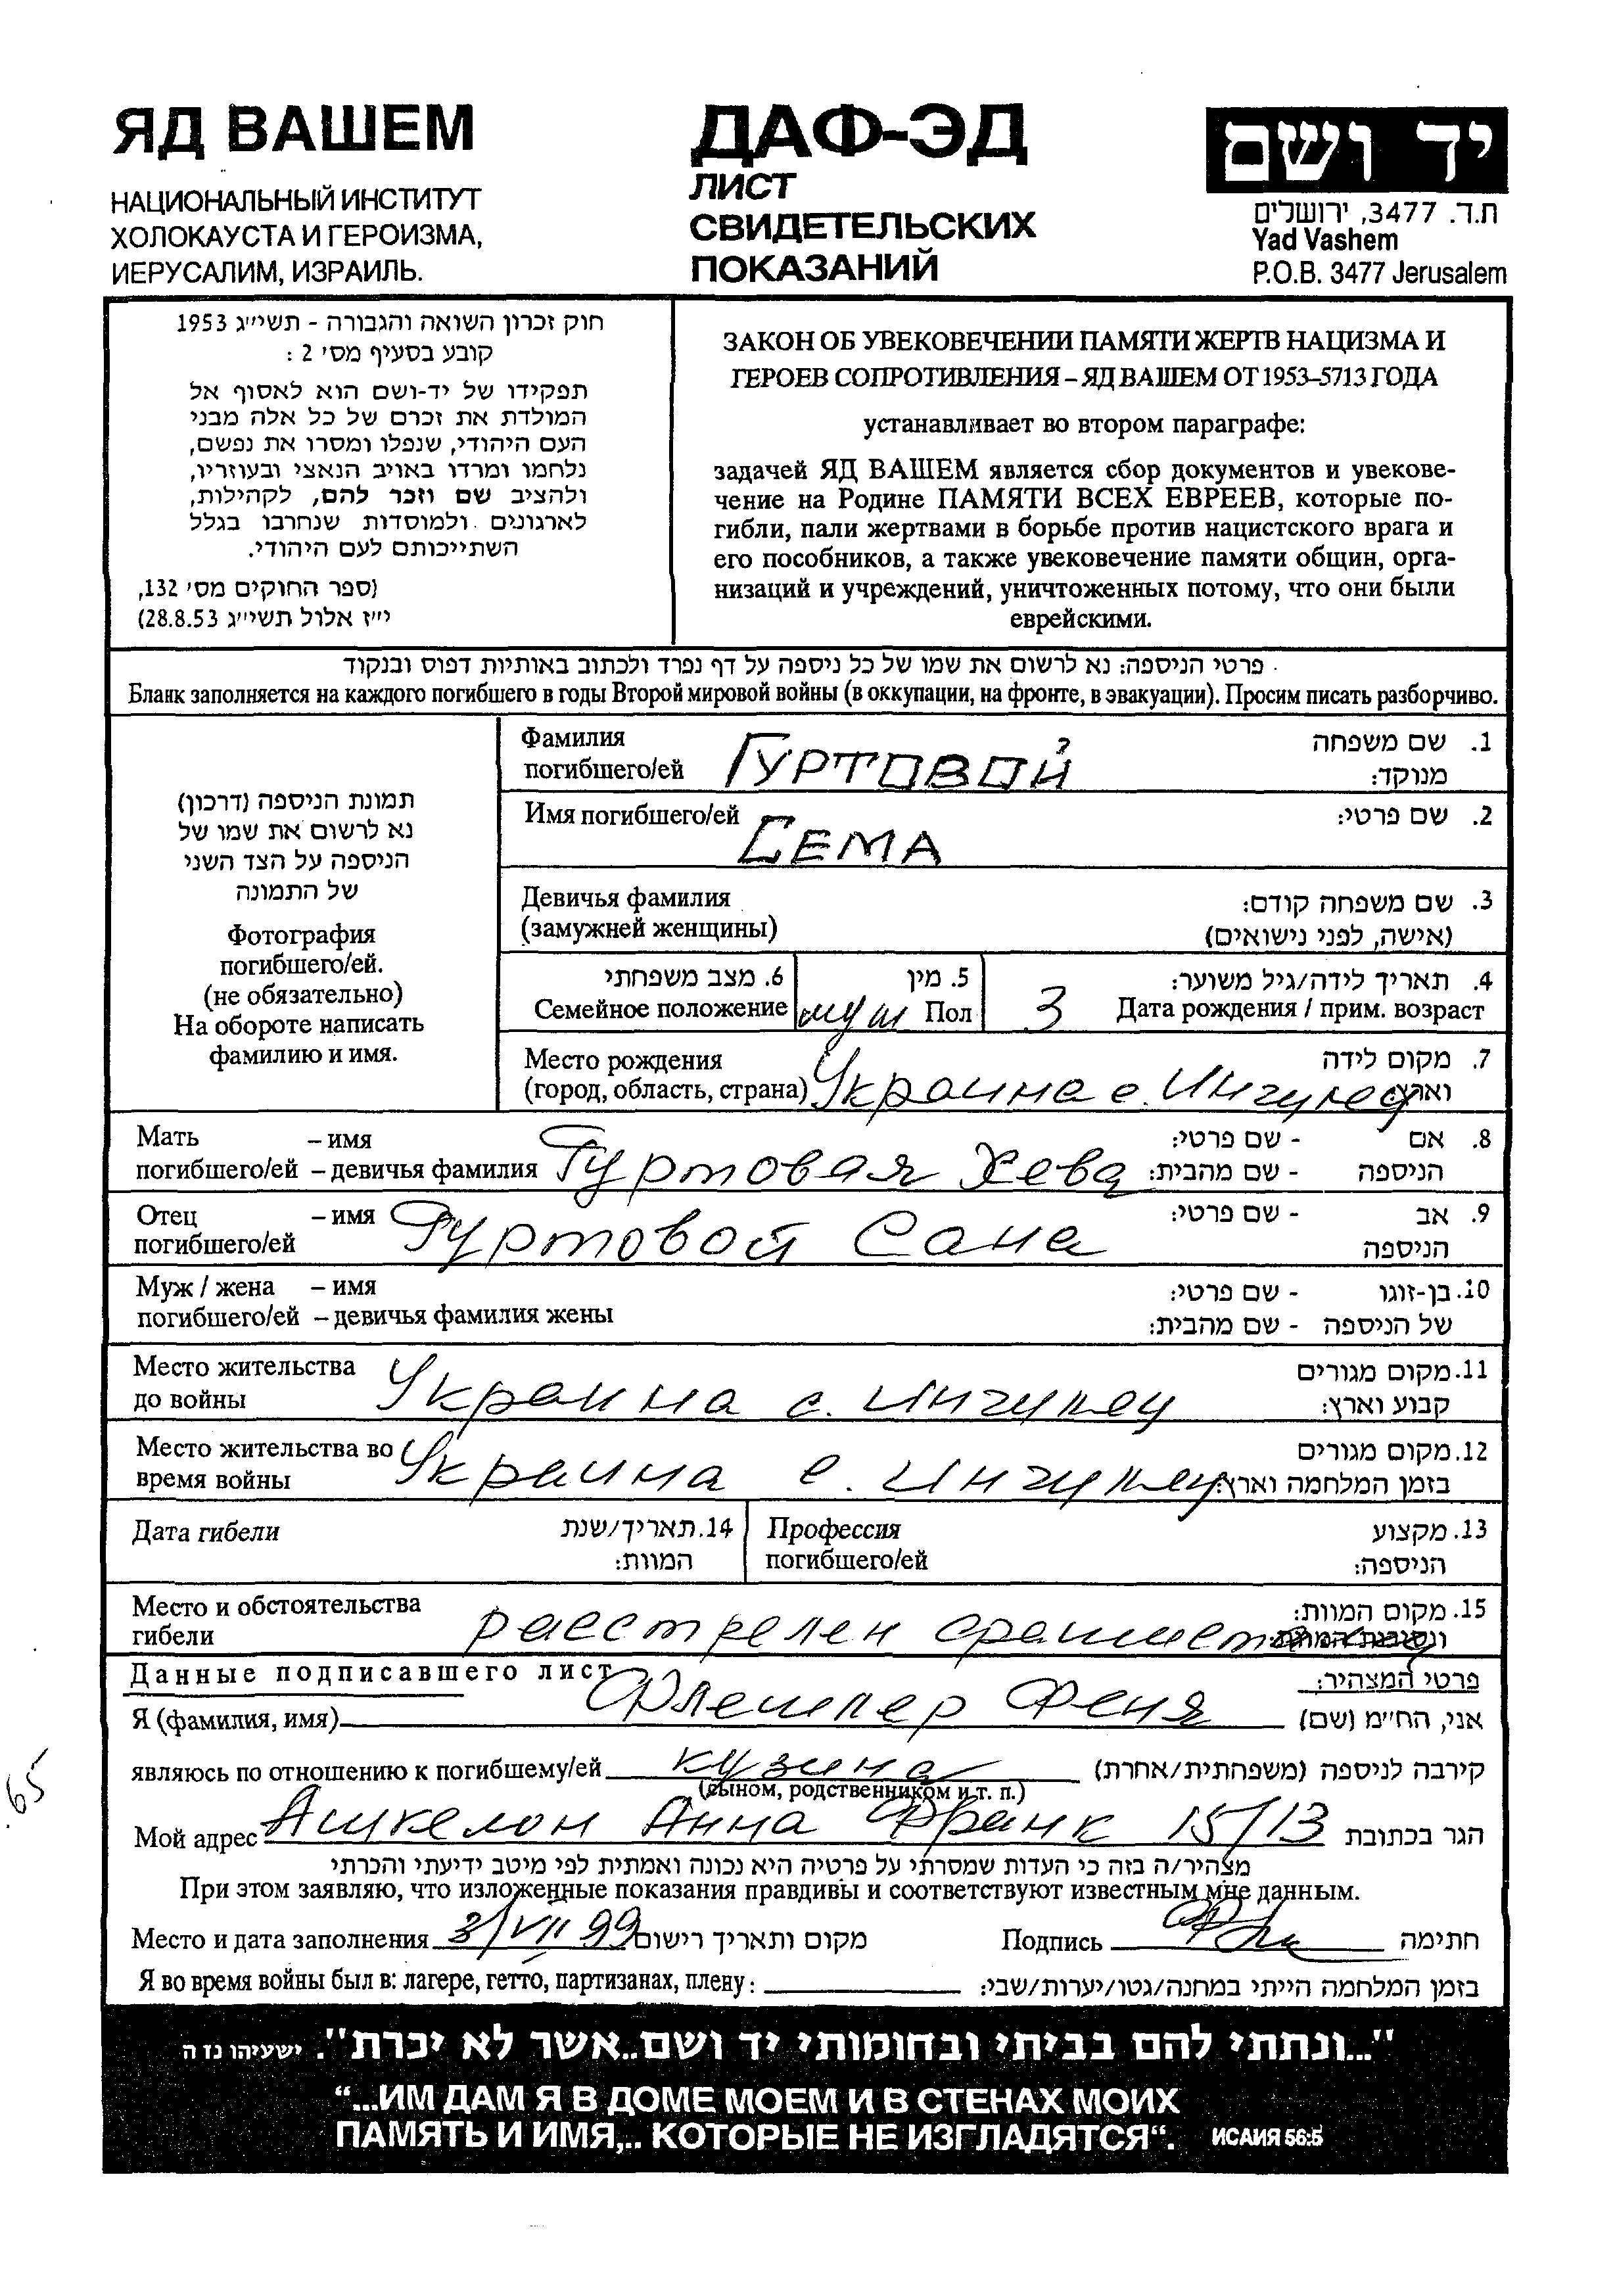 ЯД ВАШЕМ
НАЦИОНАЛЬНЫЙ ИНСТИТУТ
ХОЛОКАУСТА И ГЕРОИЗМА,
ИЕРУСАЛИМ, ИЗРАИЛЬ.
ДАФ-ЭД
ЛИСТ
СВИДЕТЕЛЬСКИХ
ПОКАЗАНИЙ
יד ושם
ת.ד. 3477, ירושלים
Yad Vashem
P.O.B. 3477 Jerusalem
חוק זכרון השואה והגבורה - תשי״ג 1953
קובע בסעיף מס׳ 2 :
תפקידו של יד-ושם הוא לאסוף אל
המולדת את זכרם של כל אלה מבני
העם היהודי, שנפלו ומסרו את נפשם,
נלחמו ומרדו באויב הנאצי ובעוזריו,
ולהציב שם וזכר להם, לקהילות,
לארגונים ולמוסדות שנחרבו בגלל
השתייכותם לעם היהודי.
(ספר החוקים מס׳ 132,
י״ז אלול תשי״ג 28.8.53)
ЗАКОН ОБ УВЕКОВЕЧЕНИИ ПАМЯТИ ЖЕРТВ НАЦИЗМА И
ГЕРОЕВ СОПРОТИВЛЕНИЯ – ЯД ВАШЕМ ОТ 1953–5713 ГОДА
устанавливает во втором параграфе:
задачей ЯД ВАШЕМ является сбор документов и увекове-
чение на Родине ПАМЯТИ ВСЕХ ЕВРЕЕВ, которые по-
гибли, пали жертвами в борьбе против нацистского врага и
его пособников, а также увековечение памяти общин, орга-
низаций и учреждений, уничтоженных потому, что они были
еврейскими.
פרטי הניספה: נא לרשום את שמו של כל ניספה על דף נפרד ולכתוב באותיות דפוס ובנקוד
Бланк заполняется на каждого погибшего в годы Второй мировой войны (в оккупации, на фронте, в эвакуации). Просим писать разборчиво.
תמונת הניספה (דרכון)
נא לרשום את שמו של
הניספה על הצד השני
של התמונה
Фотография
погибшего/ей.
(не обязательно)
На обороте написать
фамилию и имя.
Фамилия
погибшего/ей ГУРТОВОЙ
1. שם משפחה
מנוקד:
Имя погибшего/ей СЕМА
2. שם פרטי:
Девичья фамилия
(замужней женщины)
3. שם משפחה קודם:
(אישה, לפני נישואים)
6. מצב משפחתי
Семейное положение
5. מין
муж Пол
4. תאריך לידה/גיל משוער:
3 Дата рождения / прим. возраст
Место рождения
(город, область, страна) Украина с. Ингулец
7. מקום לידה
וארץ:
Мать – имя
погибшего/ей – девичья фамилия Гуртовая Хева
8. אם - שם פרטי:
הניספה - שם מהבית:
Отец – имя
погибшего/ей Гуртовой Сана
9. אב - שם פרטי:
הניספה
Муж / жена – имя
погибшего/ей – девичья фамилия жены
10. בן-זוגו - שם פרטי:
של הניספה - שם מהבית:
Место жительства
до войны Украина с. Ингулец
11. מקום מגורים
קבוע וארץ:
Место жительства во
время войны Украина с. Ингулец
12. מקום מגורים
בזמן המלחמה וארץ:
Дата гибели
14. תאריך/שנת
המוות:
Профессия
погибшего/ей
13. מקצוע
הניספה:
Место и обстоятельства
гибели расстрелен фашистами
15. מקום המוות:
ונסיבות המוות:
Данные подписавшего лист
פרטי המצהיר:
Я (фамилия, имя) Флешлер Феня אני, הח״מ (שם)
являюсь по отношению к погибшему/ей кузина קירבה לניספה (משפחתית/אחרת)
(сыном, родственником и т. п.)
Мой адрес Ашкелон Анна Франк 15/13 הגר בכתובת
מצהיר/ה בזה כי העדות שמסרתי על פרטיה היא נכונה ואמתית לפי מיטב ידיעתי והכרתי
При этом заявляю, что изложенные показания правдивы и соответствуют известным мне данным.
Место и дата заполнения 3/VII 99 מקום ותאריך רישום Подпись חתימה
Я во время войны был в: лагере, гетто, партизанах, плену: בזמן המלחמה הייתי במחנה/גטו/יערות/שבי:
65
"...ונתתי להם בביתי ובחומותי יד ושם..אשר לא יכרת". ישעיהו נז ה
“...ИМ ДАМ Я В ДОМЕ МОЕМ И В СТЕНАХ МОИХ
ПАМЯТЬ И ИМЯ,.. КОТОРЫЕ НЕ ИЗГЛАДЯТСЯ“. ИСАИЯ 56:5